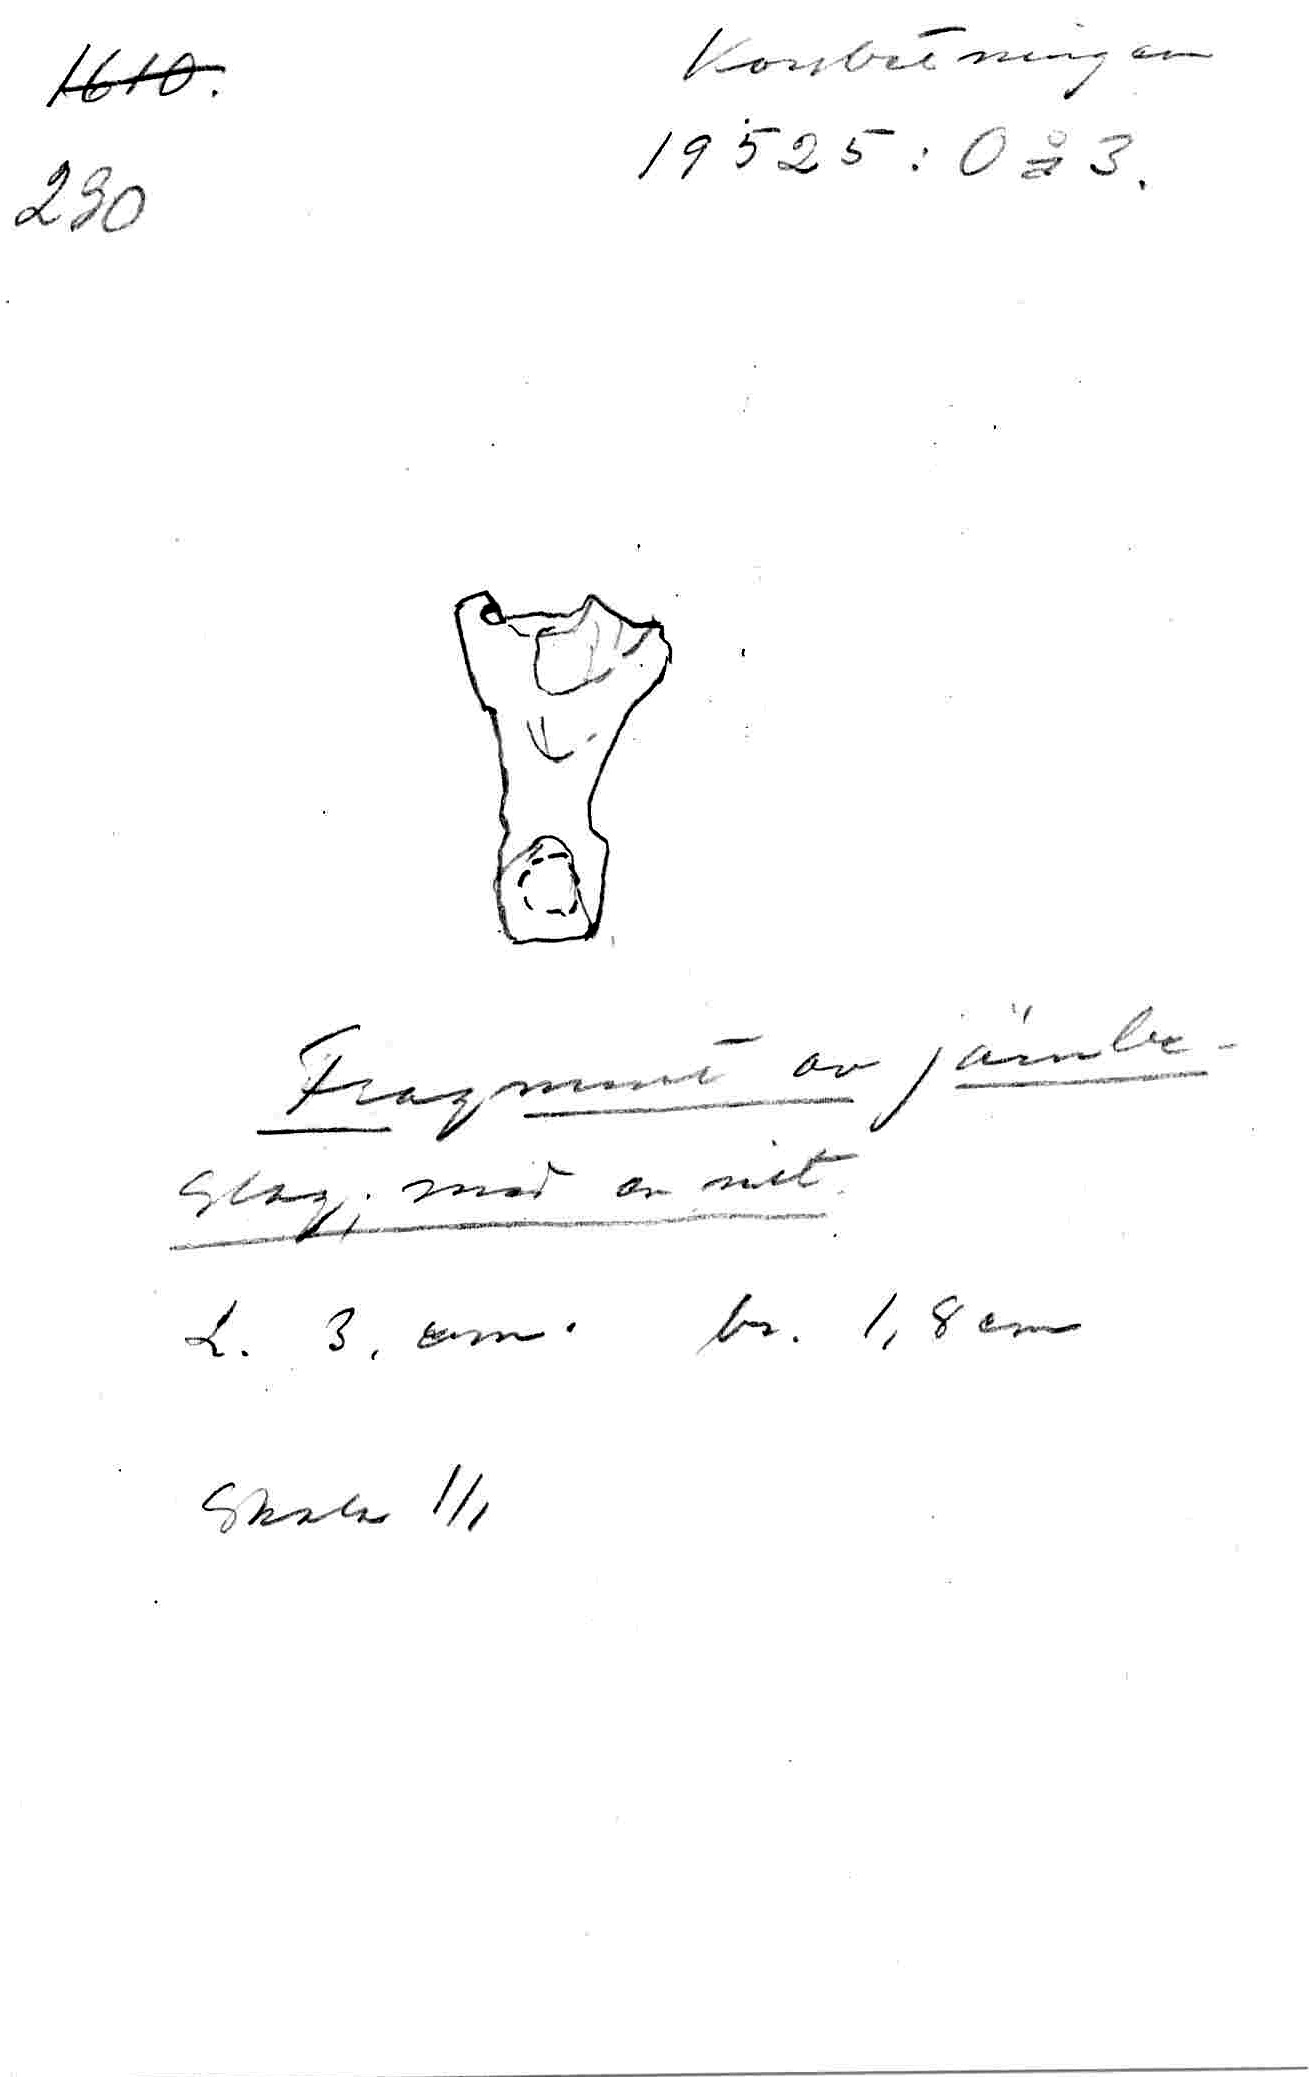 1610.
230
Korsbetningen
19525: Oå 3.
Fragment av järnbe-
slag, med en nit.
L. 3, cm. br. 1,8 cm
Skala 1/1